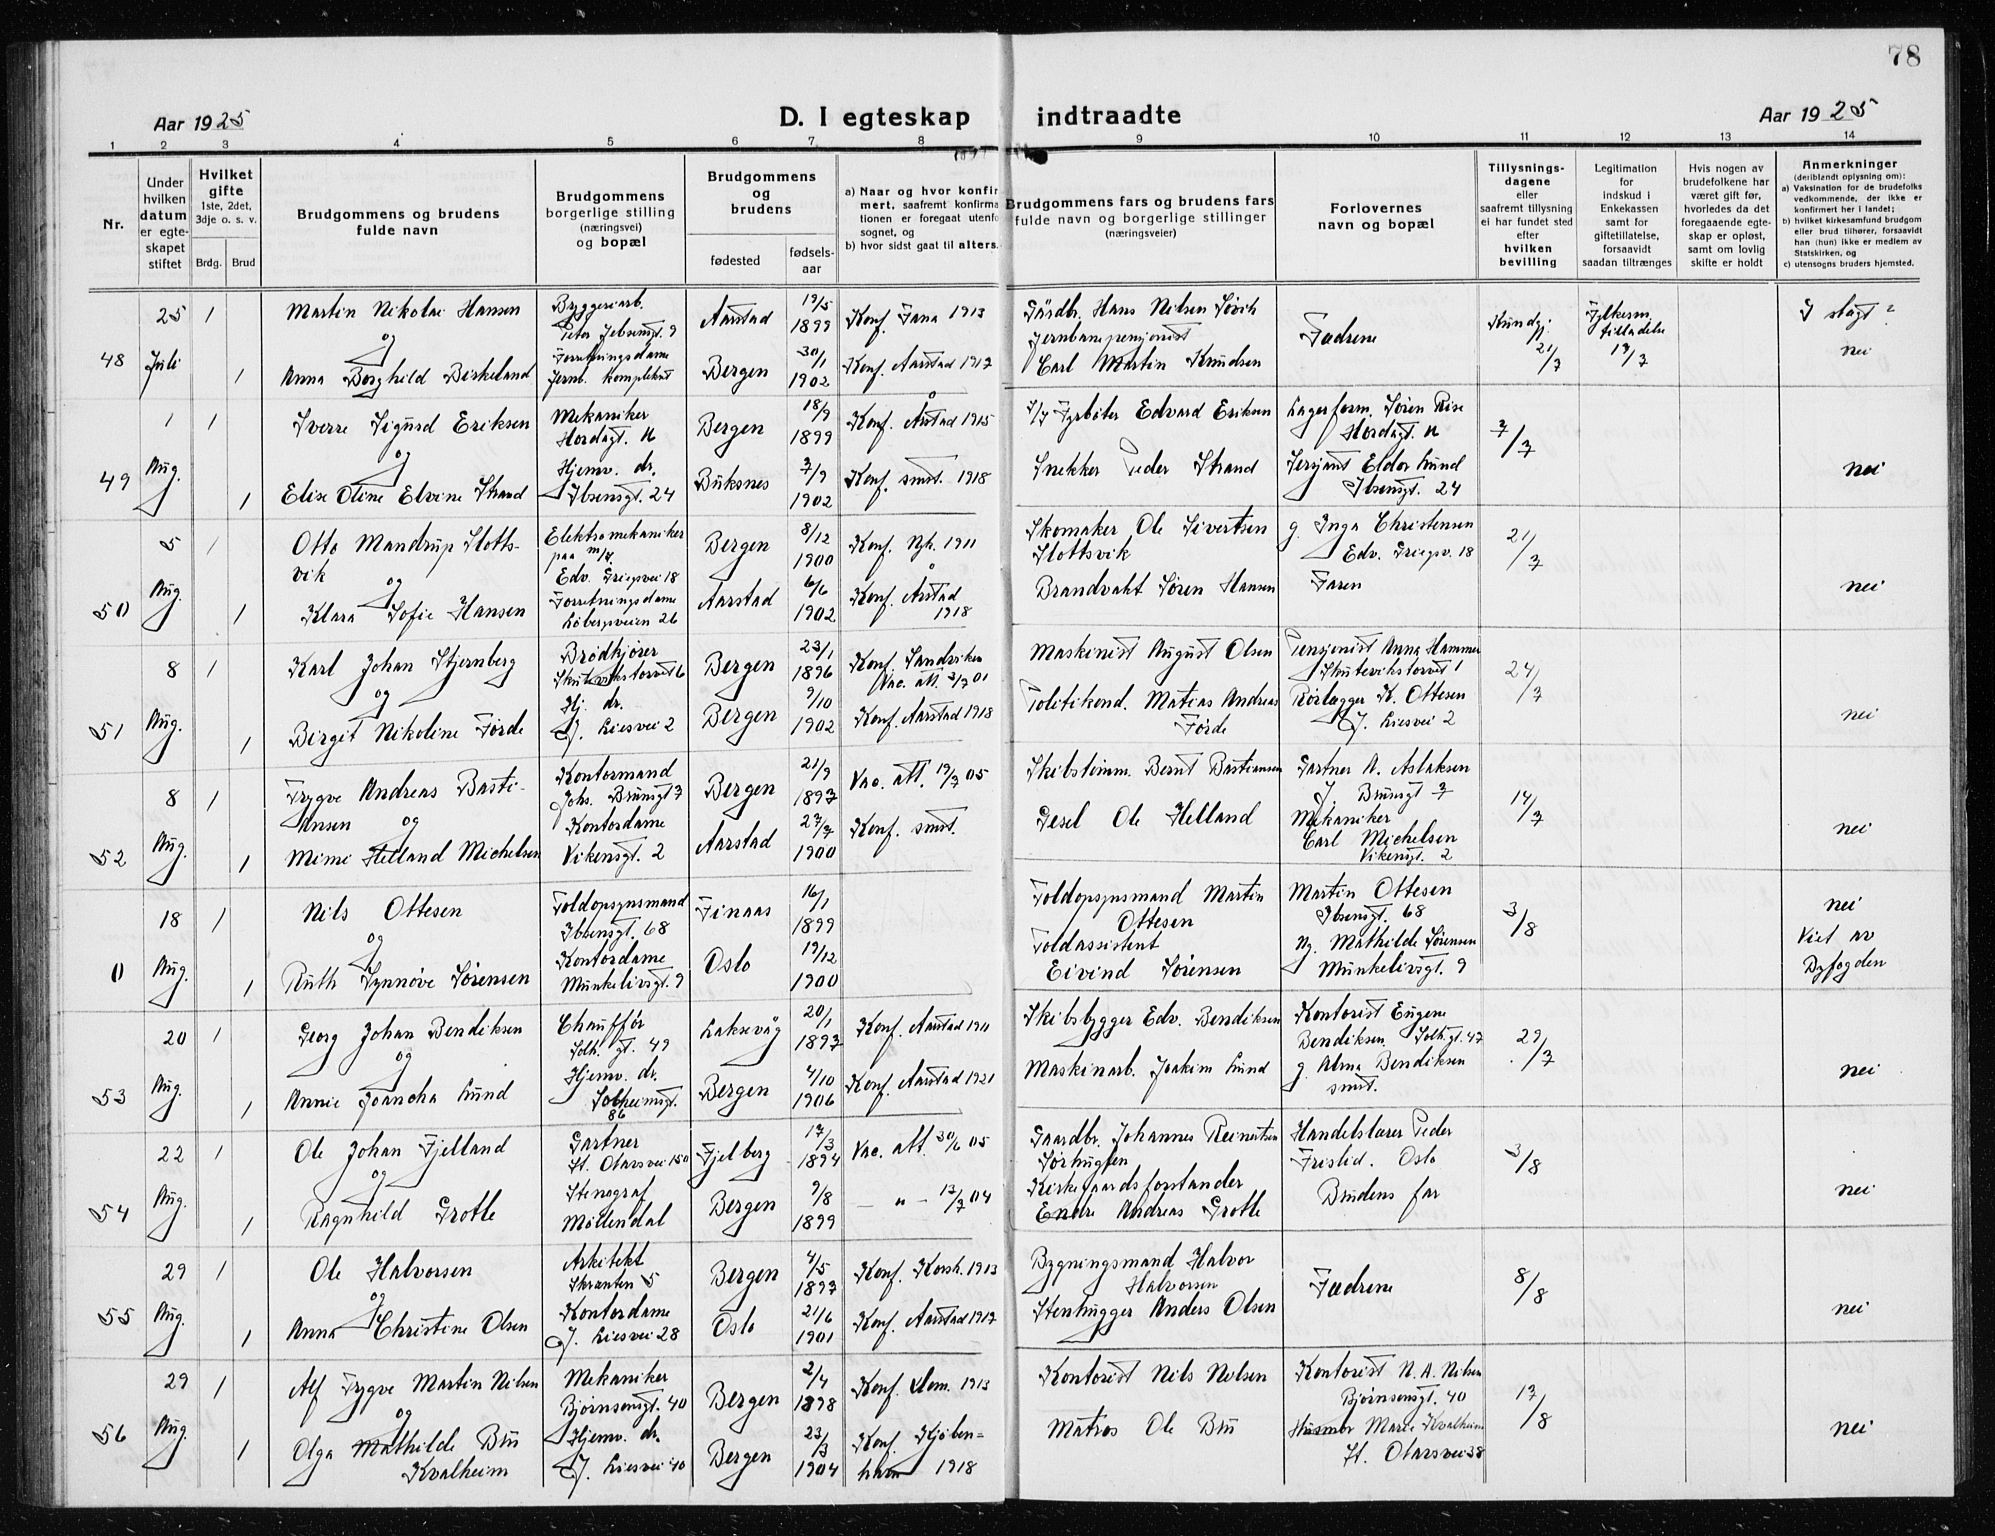 78
Aar 1925
D. I egteskap indtraadte
Aar 1925
1 2 3 4 5 6 7 8 9 10 11 12 13 14
Nr.
Under hvilken datum er egteskapet stiftet
Hvilket gifte
1ste, 2det, 3dje o. s. v.
Brdg. Brud
Brudgommens og brudens fulde navn
Brudgommens borgerlige stilling (næringsvei) og bopæl
Brudgommens og brudens
fødested
fødsels-aar
a) Naar og hvor konfir
mert, saafremt konfirma
tionen er foregaat utenfo
sognet, og
b) hvor sidst gaat til alters.
Brudgommens fars og brudens fars
fulde navn og borgerlige stillinger
(næringsveier)
Forlovernes
navn og bopæl
Tillysnings-
dagene
eller
saafremt tillysning
ei har fundet sted
efter
hvilken
bevilling
Legitimation
for
indskud i
Enkekassen
samt for
giftetillatelse,
forsaavidt
saadan tiltrænges
Hvis nogen av
brudefolkene har
været gift før,
hvorledes da det
foregaaende egte-
skap er opløst,
samt om lovlig
skifte er holdt
Anmerkninger
(deriblandt oplysning om):
a) Vaksination for de brudefolks
vedkommende, der ikke er
konfirmert her i landet;
b) hvilket kirkesamfund brudgom
eller brud tilhører, forsaavidt
han (hun) ikke er medlem av
Statskirken, og
c) utensogns bruders hjemsted.
48 25 Juli 1 Martin Nikolai Hansen Bryggeriarb. Peter Jebsensgt. 9 Aarstad 19/5 1899 Konf. Fana 1913 Gårdbr. Hans Nilsen Søvik Fædrene Kundgj. 21/7 Fylkesm. tilladelse 17/7 I slagt?
og
1 Anna Borghild Birkeland Forretningsdame Jernb. Komplekset Bergen 30/1 1902 Konf. Aarstad 1917 Jernbanepensjonist Carl Martin Knudsen nei
49 1 Aug. 1 Sverre Sigurd Eriksen Mekaniker Hordagt. 16 Bergen 18/9 1899 Konf. Årstad 1915 Fyrbøter Edvard Eriksen Lagerform. Søren Rise Hordagt. 7/7
og
1 Elise Oline Elvine Strand Hjemv. dr. Ibsensgt. 24 Buksnes 7/9 1902 Konf. smst. 1918 Snekker Peder Strand Sersjant Eldor Lund Ibsensgt. 24 nei
50 5 Aug. 1 Otto Mandrup Slottsvik Elektromekaniker paa m/s. Edv. Griegsvei 18 Bergen 8/12 1900 Konf. Nyk. 1911 Skomaker Ole Sivertsen Slottsvik g. Inga Christensen Edv. Griegsv. 18 21/7
og
1 Klara Sofie Hansen Forretningsdame Løbergsveien 26 Aarstad 6/6 1902 Konf. Årstad 1918 Brandvakt Søren Hansen Faren nei
51 8 Aug. 1 Karl Johan Stjernberg Brødkjører Skutevikstorvet 6 Bergen 23/1 1896 Konf. Sandviken Vac. att. 3/7 01 Maskinist August Olsen Pensjonist Anna Hammer Skutevikstorvet 1 24/7
og
1 Birgit Nikoline Førde Hj. dr. J. Liesvei 2 Bergen 9/10 1902 Konf. Aarstad 1918 Politikonst. Matias Andreas Førde Rørlægger K. Ottesen J. Liesvei 2 nei
52 8 Aug. 1 Trygve Andreas Bastiansen Kontormand Johs. Brunsgt 7 Bergen 21/9 1897 Vac. att. 19/7 05 Skibstømm. Bernt Bastiansen Gartner A. Aslaksen J. Brunsgt 7 14/7
og
1 Mimi Helland Michelsen Kontordame Vikensgt. 2 Aarstad 27/7 1900 Konf. smst. Gesel Ole Helland Mekaniker Carl Michelsen Vikensgt. 2 nei
0 18 Aug. 1 Nils Ottesen Toldopsynsmand Ibsensgt. 68 Finaas 16/1 1899 Toldopsynsmand Martin Ottesen Martin Ottesen Ibsensgt. 68 3/8 nei
og
1 Ruth Synnøve Sørensen Kontordame Munkelivsgt. 9 Oslo 19/12 1900 Toldassistent Eivind Sørensen Mathilde Sørensen Munkelivsgt. 9 Viet av Byfogden
53 20 Aug. 1 Georg Johan Bendiksen Chauffør Solh. gt. 49 Laksevåg 20/1 1897 Konf. Aarstad 1911 Skibsbygger Edv. Bendiksen Kontorist Eugene Bendiksen. Solh. gt. 47 29/7
og
1 Annie Joancha Lund Hjemv. dr. Solheimsgt. 86 Bergen 4/10 1906 Konf. Aarstad 1921 Maskinarb. Joakim Lund g. Alma Bendiksen smst. nei
54 22 Aug. 1 Ole Johan Fjelland Gartner St. Olavsvei 150 Fjelberg 17/3 1894 Vac. att. 30/6 05 Gaardbr. Johannes Reinertsen Sørhuglen Handelslærer Peder Fristid. Oslo 3/8
og
1 Ragnhild Grotle Stenograf Møllendal Bergen 9/8 1899 — " — 13/7 04 Kirkegaardsforstander Endre Andreas Grotle Brudens far nei
55 29 Aug. 1 Ole Halvorsen Arkitekt Skranten 5 Bergen 4/5 1897 Konf. Korsk. 1913 Bygningsmand Halvor Halvorsen Fædrene 8/8
og
1 Anna Christine Olsen Kontordame J. Liesvei 28 Oslo 21/6 1901 Konf. Aarstad 1917 Stenhugger Anders Olsen nei
56 29 Aug. 1 Alf Trygve Martin Nilsen Mekaniker Bjørnsonsgt. 40 Bergen 2/4 1898 Konf. Dom. 1913 Kontorist Nils Nilsen Kontorist N. A. Nilsen Bjørnsonsgt. 40 17/8
og
1 Olga Mathilde Bru Kvalheim Hjemv. dr. J. Liesvei 40 Bergen 23/3 1904 Konf. Kjøbenhavn 1918 Matros Ole Bru Husmor Marie Kvalheim St. Olavsvei 38 nei